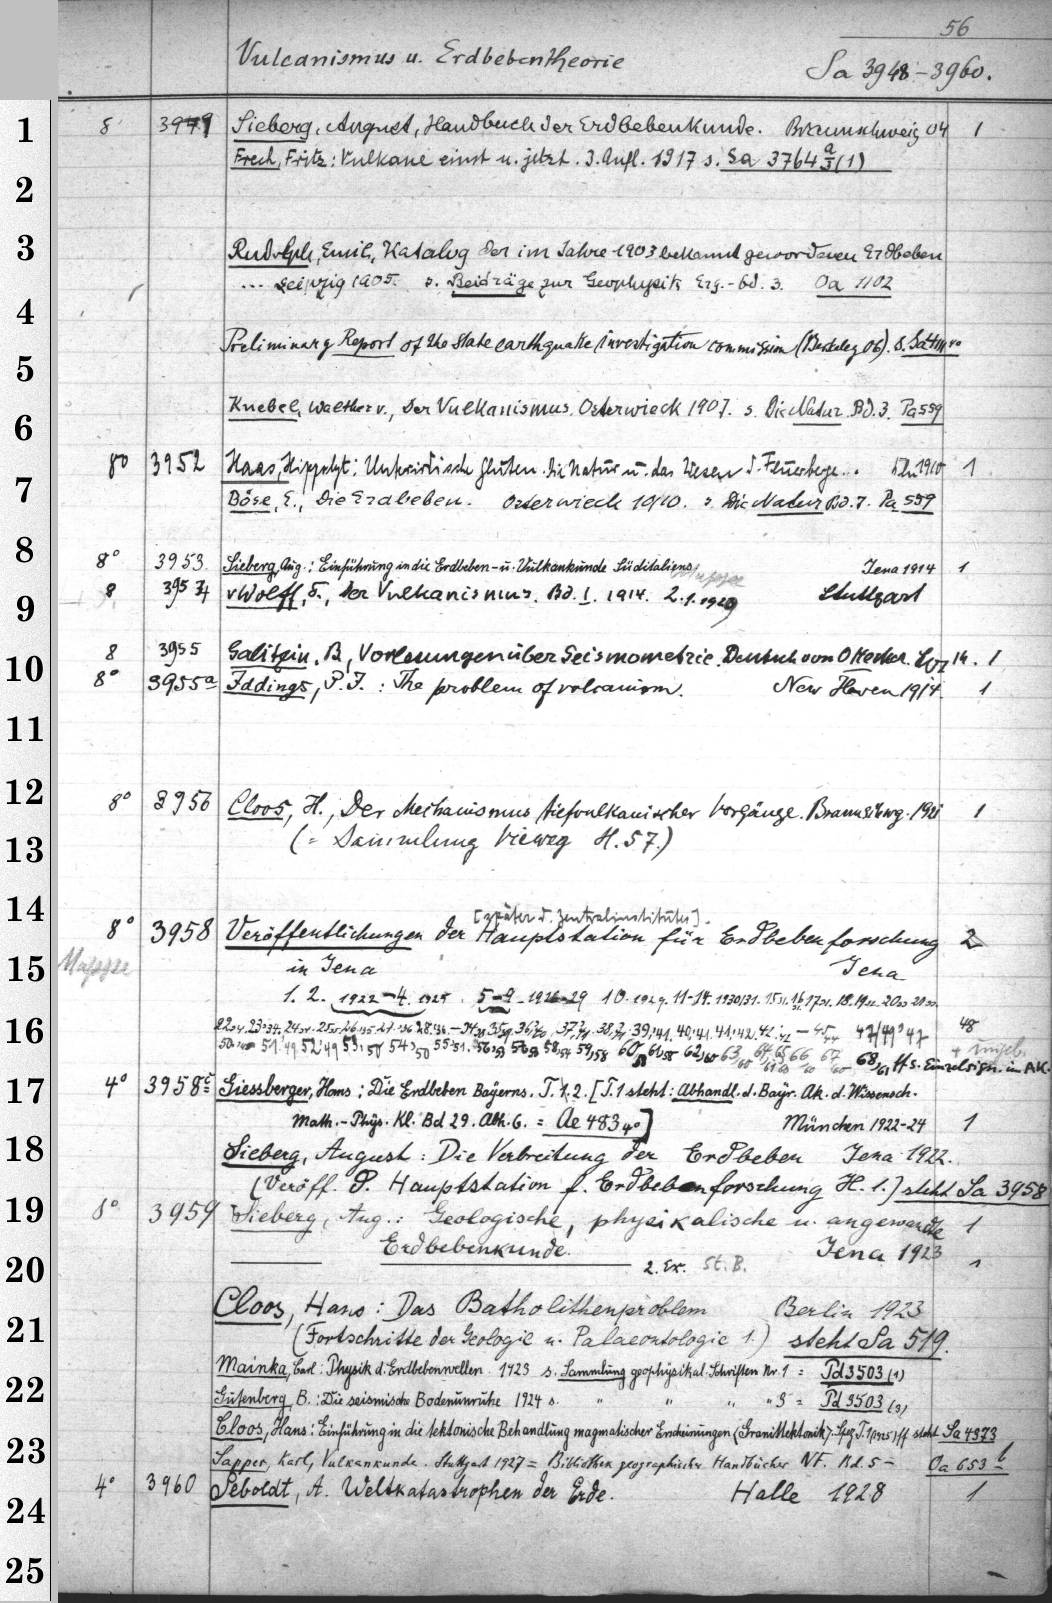 56
Vulcanismus u. Erdbebentheorie
Sa 3948-3960.
1 8 3949 Sieberg, August, Handbuch der Erdbebenkunde. Braunschweig 04 1
Frech, Fritz: Vulkane einst u. jetzt. 3. Aufl. 1917 s. Sa 3764 a/3 (1)
2
3 Rudolph, Emil, Katalog der im Jahre 1903 bekannt gewordenen Erdbeben
... Leipzig 1905. s. Beiträge zur Geophysik Erg.-bd. 3. Oa 1102
4
Preliminary Report of the State earthquake investigation commission (Berkeley 06). s.
5
Knebel, Walther v., Der Vulkanismus. Osterwieck 1907. s. Die Natur. Bd. 3. Pa 559
6
8° 3952 Haas, Hippolyt: Unterirdische Gluten. Die Natur u. das Wesen d. Feuerberge... 1910 1
7 Böse, E., Die Erdbeben. Osterwieck 1910. s. Die Natur Bd. 7. Pa 559
8
8° 3953. Sieberg, Aug.: Einführung in die Erdbeben- u. Vulkankunde Süditaliens Jena 1914 1
9 8 3954 v Wolff, F., Der Vulkanismus. Bd. I. 1914. 2.1.1929 Stuttgart
8 3955 Galitzin, B., Vorlesungen über Seismometrie. Deutsch von O Hecker. Lpz 14. 1
10 8° 3955a Iddings, P. J.: The problem of volcanism. New Haven 1914. 1
11
12 8° 3956 Cloos, H., Der Mechanismus tiefvulkanischer Vorgänge. Braunschwg. 1921 1
13 (= Sammlung Vieweg H. 57.)
14 [später d. Zentralinstitutes].
8° 3958 Veröffentlichungen der Hauptstation für Erdbebenforschung 2
15 Mappe in Jena Jena
1. 2. 1922-4. 1925. 5-9 1926-29 10. 1929. 11-14. 1930/31.
16 48
ff s. Einzelsign. im AK.
17 4° 3958c Giessberger, Hans: Die Erdbeben Bayerns. T. 1. 2. [T. 1 steht: Abhandl. d. Bayr. Ak. d. Wissensch.
Math.-Phys. Kl. Bd 29. Abh. 6. = Ae 483 4°] München 1922-24 1
18 Sieberg, August: Die Verbreitung der Erdbeben Jena 1922.
(Veröff. d. Hauptstation f. Erdbebenforschung H. 1.) steht Sa 3958
19 8° 3959 Sieberg, Aug.: Geologische, physikalische u. angewandte 1
Erdbebenkunde. Jena 1923
20 2. Ex. St. B. 1
Cloos, Hans: Das Batholithenproblem Berlin 1923
21 (Fortschritte der Geologie u. Palaeontologie 1.) steht Sa 519.
Mainka, Carl: Physik d. Erdbebenwellen 1923 s. Sammlung geophysikal. Schriften Nr. 1 = Pd 3503 (1)
22 Gutenberg, B.: Die seismische Bodenunruhe 1924 s. " " " " 3 = Pd 3503 (3)
Cloos, Hans: Einführung in die tektonische Behandlung magmatischer Erscheinungen (Granittektonik). Spez T. 1 (1925) ff steht Sa 4373
23 Sapper, Karl, Vulkankunde. Stuttgart 1927 = Bibliothek geographischer Handbücher NF. Bd. 5 - Oa 653 b
4° 3960 Seboldt, A. Weltkatastrophen der Erde. Halle 1928 1
24
25